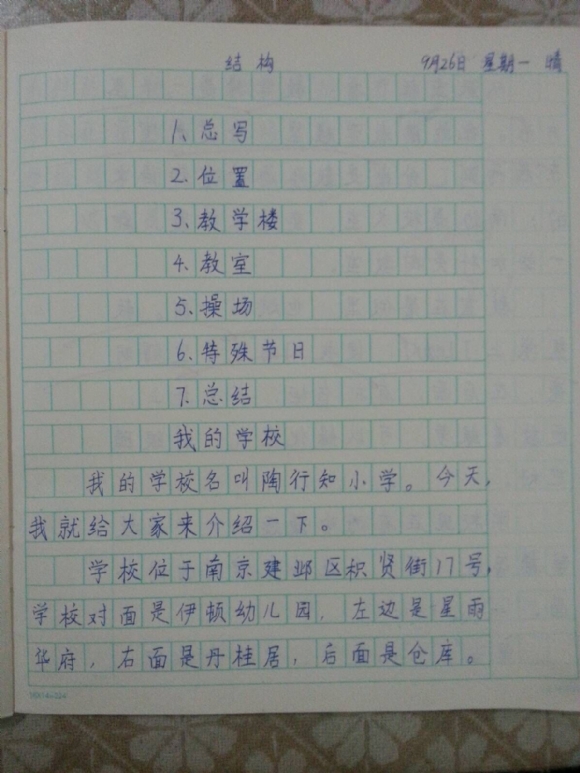 结构 9月26日 星期一 晴
1、总写
2、位置
3、教学楼
4、教室
5、操场
6、特殊节日
7、总结
我的学校
我的学校名叫陶行知小学。今天,
我就给大家来介绍一下。
学校位于南京建邺区积贤街17号,
学校对面是伊顿幼儿园,左边是星雨
华府,右面是丹桂居,后面是仓库。